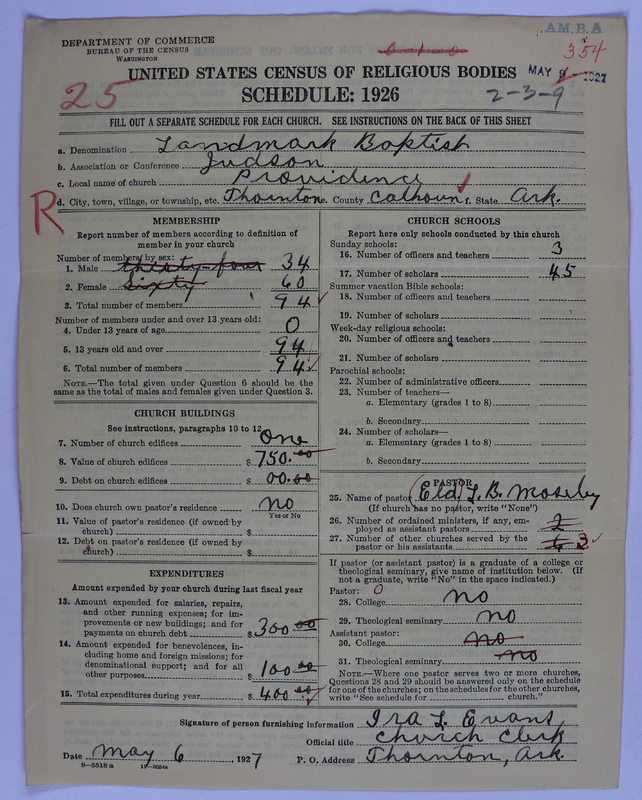 DEPARTMENT OF COMMERCE
BUREAU OF THE CENSUS
WASHINGTON
A.M.B.A
354
UNITED STATES CENSUS OF RELIGIOUS BODIES
MAY 9 - 1927
25
SCHEDULE: 1926
2-3-9
FILL OUT A SEPARATE SCHEDULE FOR EACH CHURCH. SEE INSTRUCTIONS ON THE BACK OF THIS SHEET
a. Denomination Landmark Baptist
b. Association or Conference Judson
c. Local name of church Providence
R
d. City, town, village, or township, etc. Thornton e. County Calhoun f. State Ark.
MEMBERSHIP
Report number of members according to definition of
member in your church
Number of members by sex:
1. Male thirty-four 34
2. Female Sixty 60
3. Total number of members 94
Number of members under and over 13 years old:
4. Under 13 years of age 0
5. 13 years old and over 94
6. Total number of members 94
NOTE.—The total given under Question 6 should be the
same as the total of males and females given under Question 3.
CHURCH BUILDINGS
See instructions, paragraphs 10 to 12
7. Number of church edifices One
8. Value of church edifices $ 750.00
9. Debt on church edifices $ 00.00
10. Does church own pastor's residence? no
Yes or No
11. Value of pastor's residence (if owned by
church) $
12. Debt on pastor's residence (if owned by
church) $
EXPENDITURES
Amount expended by your church during last fiscal year
13. Amount expended for salaries, repairs,
and other running expenses; for im-
provements or new buildings; and for
payments on church debt $ 300 00
14. Amount expended for benevolences, in-
cluding home and foreign missions; for
denominational support; and for all
other purposes $ 100 00
15. Total expenditures during year $ 400 00
CHURCH SCHOOLS
Report here only schools conducted by this church
Sunday schools:
16. Number of officers and teachers 3
17. Number of scholars 45
Summer vacation Bible schools:
18. Number of officers and teachers
19. Number of scholars
Week-day religious schools:
20. Number of officers and teachers
21. Number of scholars
Parochial schools:
22. Number of administrative officers
23. Number of teachers—
a. Elementary (grades 1 to 8)
b. Secondary
24. Number of scholars—
a. Elementary (grades 1 to 8)
b. Secondary
PASTOR
25. Name of pastor Eld. L. B. Moseley
(If church has no pastor, write "None")
26. Number of ordained ministers, if any, em-
ployed as assistant pastors
27. Number of other churches served by the
pastor or his assistants 3
If pastor (or assistant pastor) is a graduate of a college or
theological seminary, give name of institution below. (If
not a graduate, write "No" in the space indicated.)
Pastor: 0
28. College no
29. Theological seminary no
Assistant pastor:
30. College no
31. Theological seminary no
NOTE.—Where one pastor serves two or more churches,
Questions 28 and 29 should be answered only on the schedule
for one of the churches; on the schedules for the other churches,
write "See schedule for church."
Signature of person furnishing information Ira L. Evans,
Official title Church Clerk
Date May 6, 1927 P. O. Address Thornton, Ark.
8-5518 a